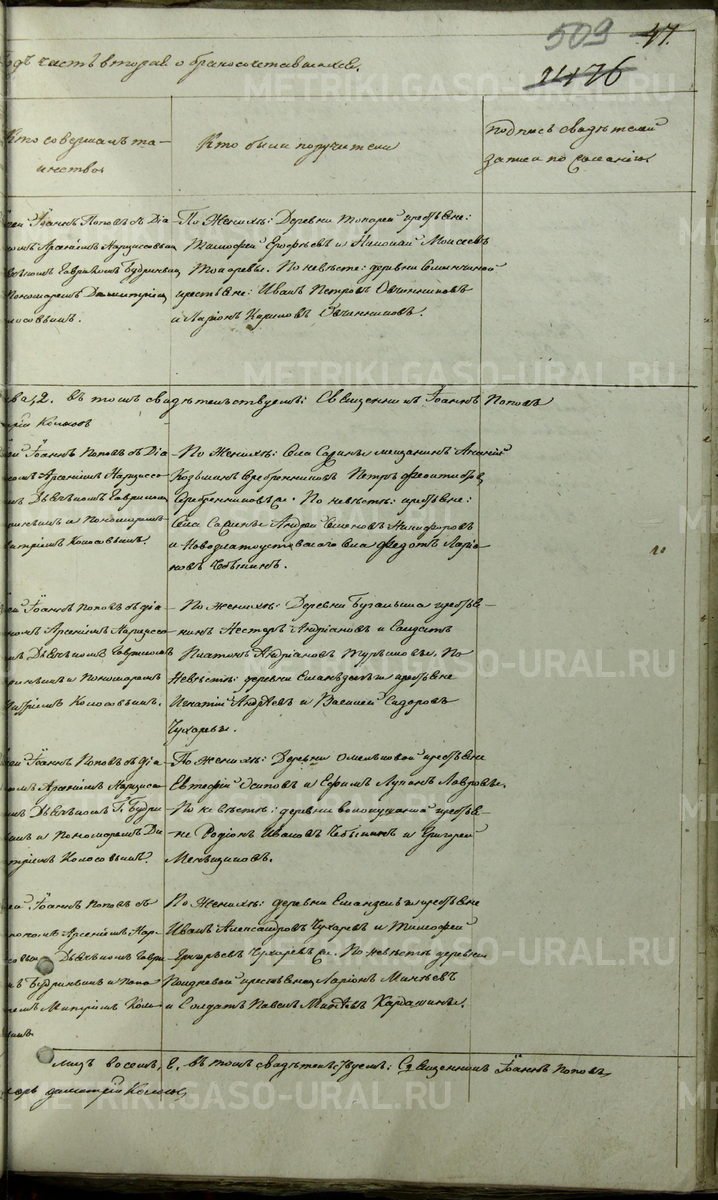 509 47.
1476
годъ часть вторая о бракосочетавшихся.
Кто совершалъ та-
инство
Кто были поручители
Подпись свидѣтелей
записи по желанію
рей Іоаннъ Поповъ съ Діа-
кономъ Арсеніемъ Нарциссовымъ
Дьячкомъ Гавріиломъ Будринымъ
Пономаремъ Димитріемъ
Колосовымъ.
По Женихѣ: Деревни Токарей крестьяне:
Тимофей Ерофѣевъ и Николай Моисеевъ
Токаревы. По невѣсте: деревни
крестьяне: Иванъ Петровъ Овчинниковъ
и Ларіонъ Карповъ Овчинниковъ.
два, 2. въ томъ свидѣтельствуемъ: Священникъ Іоаннъ Поповъ
рей Іоаннъ Поповъ съ Діа-
кономъ Арсеніемъ Нарциссо-
вымъ Дьячкомъ Гавриломъ
и Пономаремъ
Димитріемъ Колосовымъ.
По Женихѣ: Села Сарины мещанинъ Ананій
Козьминъ Серебренниковъ Петръ
Серебренниковъ. По невѣстѣ: крестьяне:
Села Сарины Андрей Семеновъ Никифоровъ
и Новозлатоустовскаго села Федотъ Ларіо-
новъ Чебыкинъ.
рей Іоаннъ Поповъ съ діа-
кономъ Арсеніемъ Нарциссо-
вымъ Дьячкомъ Гавриломъ
и Пономаремъ
Дмитріемъ Колосовымъ.
По женихѣ: Деревни Бугалыша крестья-
нинъ Нестеръ Андріановъ и Солдатъ
Платонъ Андріановъ Турышовы. По
Невѣсте: деревни Еманзельги крестьяне
Игнатій Андрѣевъ и Василей Сидоровъ
Чухаревы.
рей Іоаннъ Поповъ съ діа-
кономъ Арсеніемъ Нарциссо-
вымъ Дьячкомъ Г. Будри-
нымъ и Пономаремъ Ди-
митріемъ Колосовымъ.
По женихѣ: Деревни Омельковой крестьяне
Евтефій Осиповъ и Ефимъ Лупанъ Лавровы.
По невѣсте: деревни крестья-
не Родіонъ Ивановъ Чебыкинъ и Григорей
Меньшиковъ.
рей Іоаннъ Поповъ съ
діакономъ Арсеніемъ Нар-
Дьячкомъ Гаври-
ломъ Будринымъ и Поно-
маремъ Митріемъ Коло-
совымъ.
По Женихѣ: деревни Еманзельги крестьяне
Иванъ Александровъ Чухаревъ и Тимофей
Григорьевъ Чухаревъ. По невѣсте деревни
крестьянинъ Ларіонъ
и Солдатъ Павелъ Кардашины.
лицъ восемь, 8. въ томъ свидѣтельствуемъ: Священникъ Іоаннъ Поповъ
марь димитрій Колосовъ
METRIKI.GASO-URAL.RU